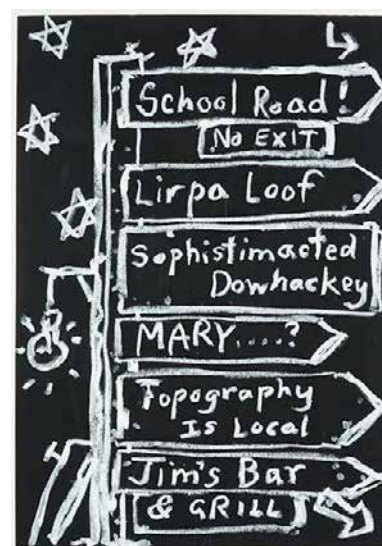 School Road!
No EXIT
Lirpa Loof
Sophistimacted
Dowhackey
MARY....?
Topography
Is Local
Jim's Bar
& GRILL